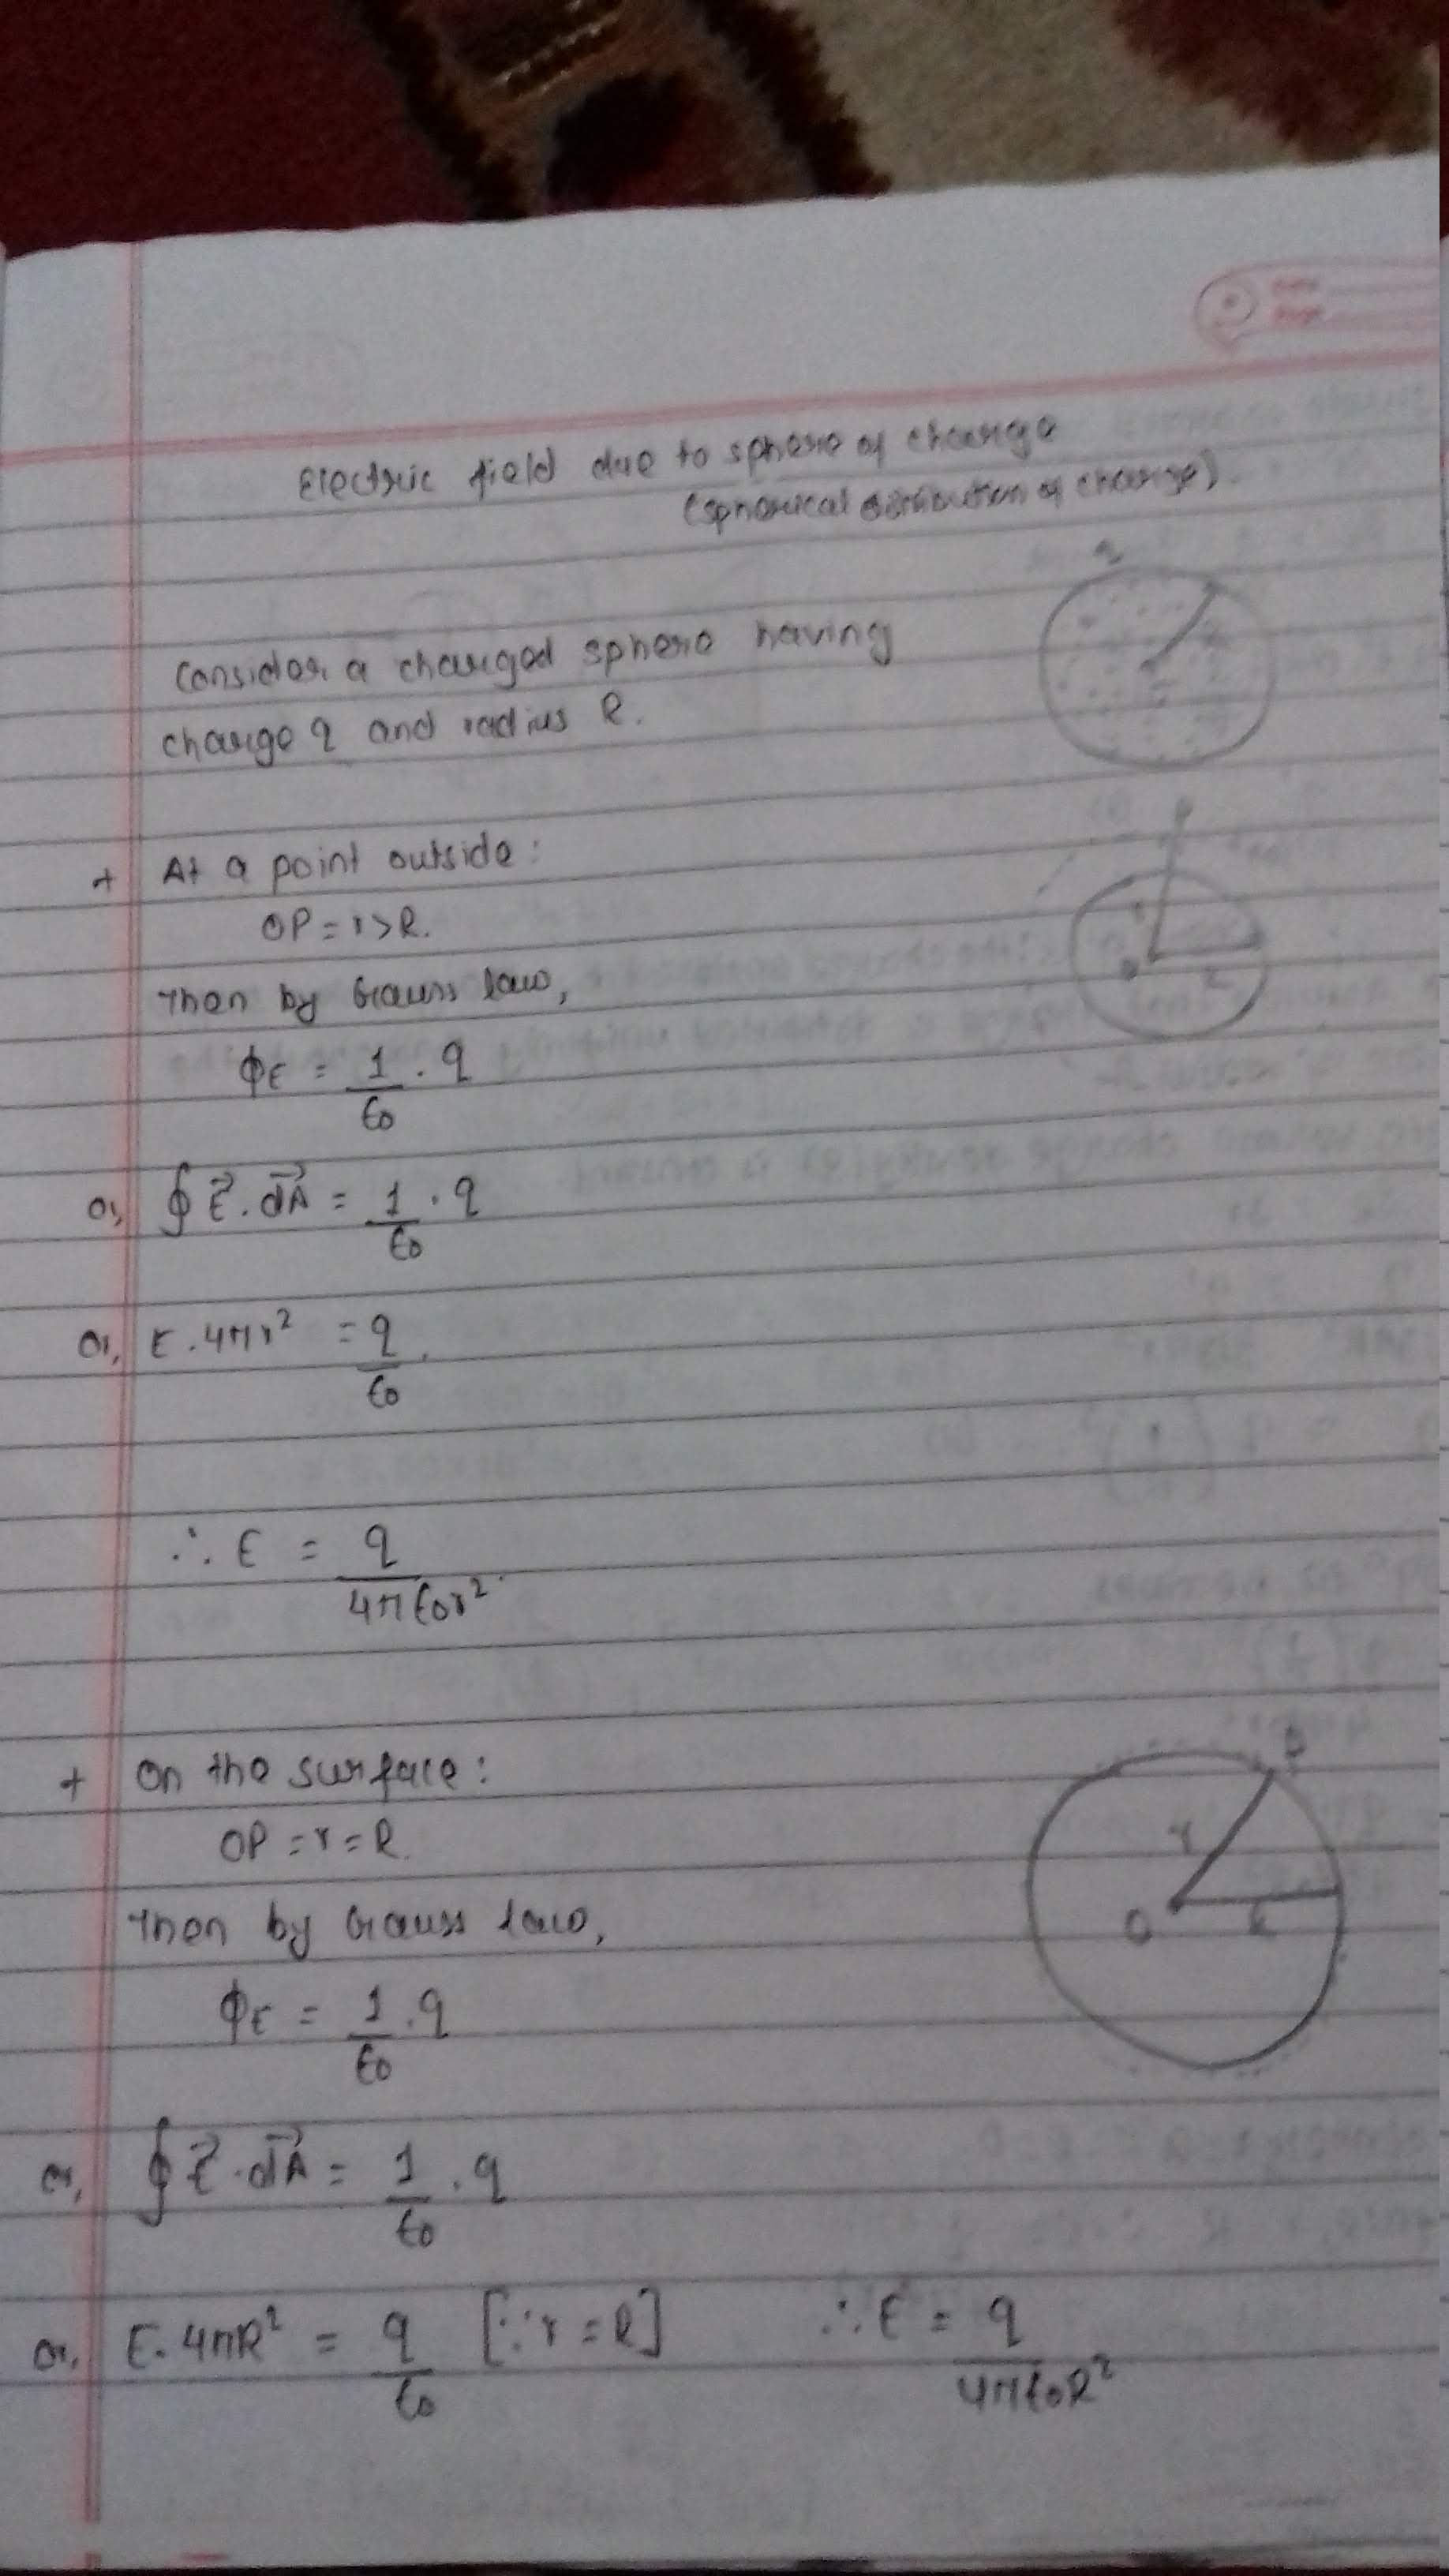 Electric field due to sphere of charge
(spherical distribution of charge).
Consider a charged sphere having
charge q and radius R.
+ At a point outside:
OP = r > R.
Then by Gauss law,
ϕE = 1/ε0 . q
or, ∮ E⃗ . dA⃗ = 1/ε0 . q
or, E . 4πr² = q/ε0 .
∴ E = q/4πε0r² .
+ On the surface:
OP = r = R.
Then by Gauss law,
ϕE = 1/ε0 . q
or, ∮ E⃗ . dA⃗ = 1/ε0 . q
or, E . 4πR² = q/ε0 [∵ r = R] ∴ E = q/4πε0R²
r
O
R